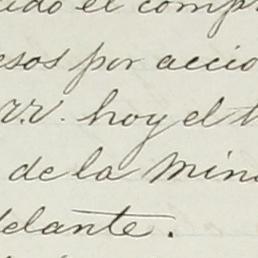 ido el comp
esos por accio
rr. hoy el t
de la Min
delante.